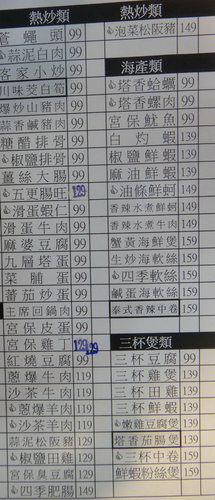 熱炒類
蒼蠅頭 99
👍蒜泥白肉 99
客家小炒 99
川味茭白筍 99
爆炒山豬肉 99
蒜香鹹豬肉 99
糖醋排骨 99
👍椒鹽排骨 99
薑絲大腸 99
👍五更腸旺 129
👍滑蛋蝦仁 99
滑蛋牛肉 99
麻婆豆腐 99
九層塔蛋 99
菜脯蛋 99
蕃茄炒蛋 99
主席回鍋肉 99
宮保皮蛋 99
宮保雞丁 129 129
紅燒豆腐 99
蔥爆牛肉 119
沙茶牛肉 119
👍蔥爆羊肉 119
👍沙茶羊肉 119
蒜泥松阪豬 129
👍椒鹽田雞 129
宮保臭豆腐 129
👍四季肥腸 149
熱炒類
👍泡菜松阪豬 149
海產類
👍塔香蛤蠣 99
👍塔香螺肉 99
宮保魷魚 99
白灼蝦 139
椒鹽鮮蝦 139
麻油鮮蝦 139
👍油條鮮蚵 149
香辣水煮鮮蚵 149
香辣水煮牛肉 149
蟹黃海鮮煲 159
生炒海鮮絲 159
👍四季軟絲 159
鹹蛋軟絲 159
泰式香辣中卷 159
三杯煲類
三杯豆腐 99
三杯雞煲 119
三杯田雞 139
三杯鮮蝦 139
👍嫩雞豆腐煲 139
塔香茄腸煲 139
三杯中卷 159
鮮蝦粉絲煲 159